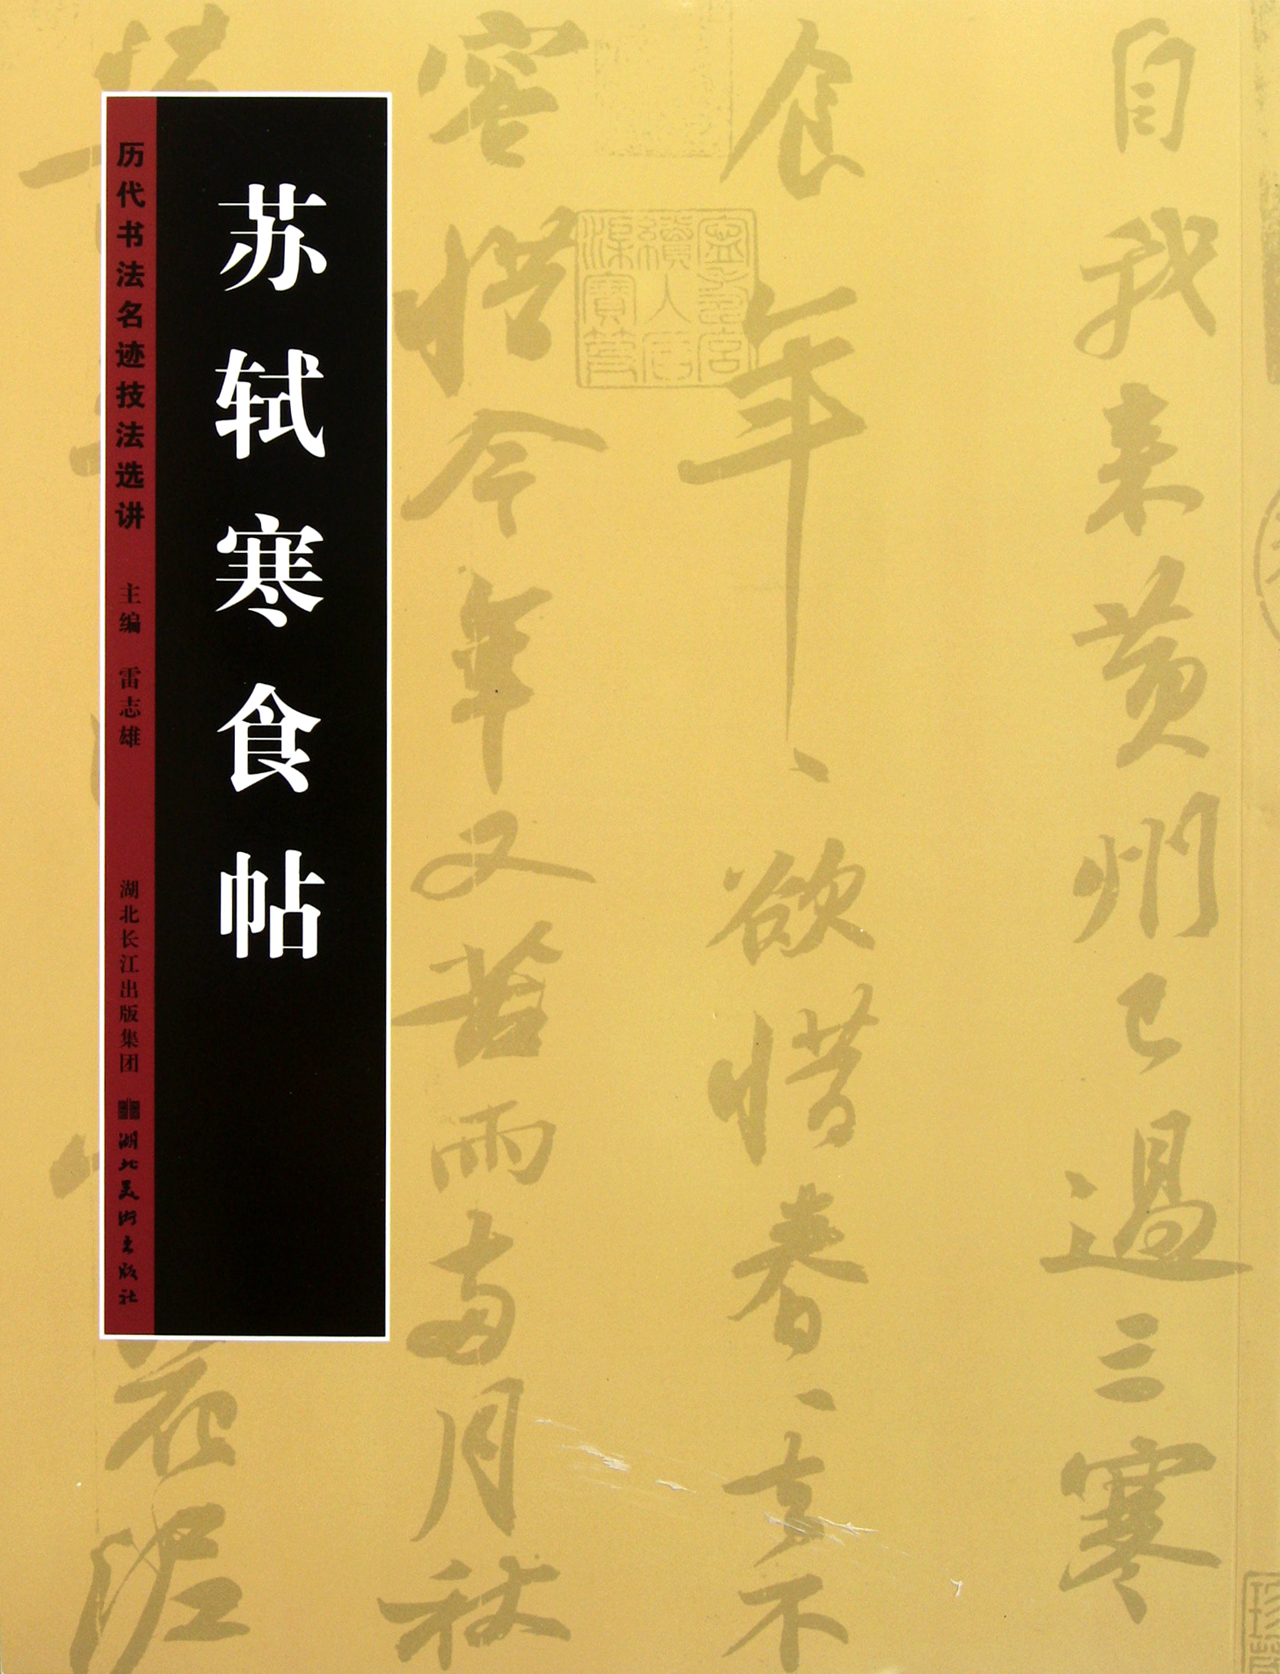 苏轼寒食帖
历代书法名迹技法选讲
主编 雷志雄
湖北长江出版集团
湖北美术出版社
自我来黄州已過三寒
食年、欲惜春、去不
容惜今年又苦雨兩月秋
花泥
寧壽宮
續入石
渠寶笈